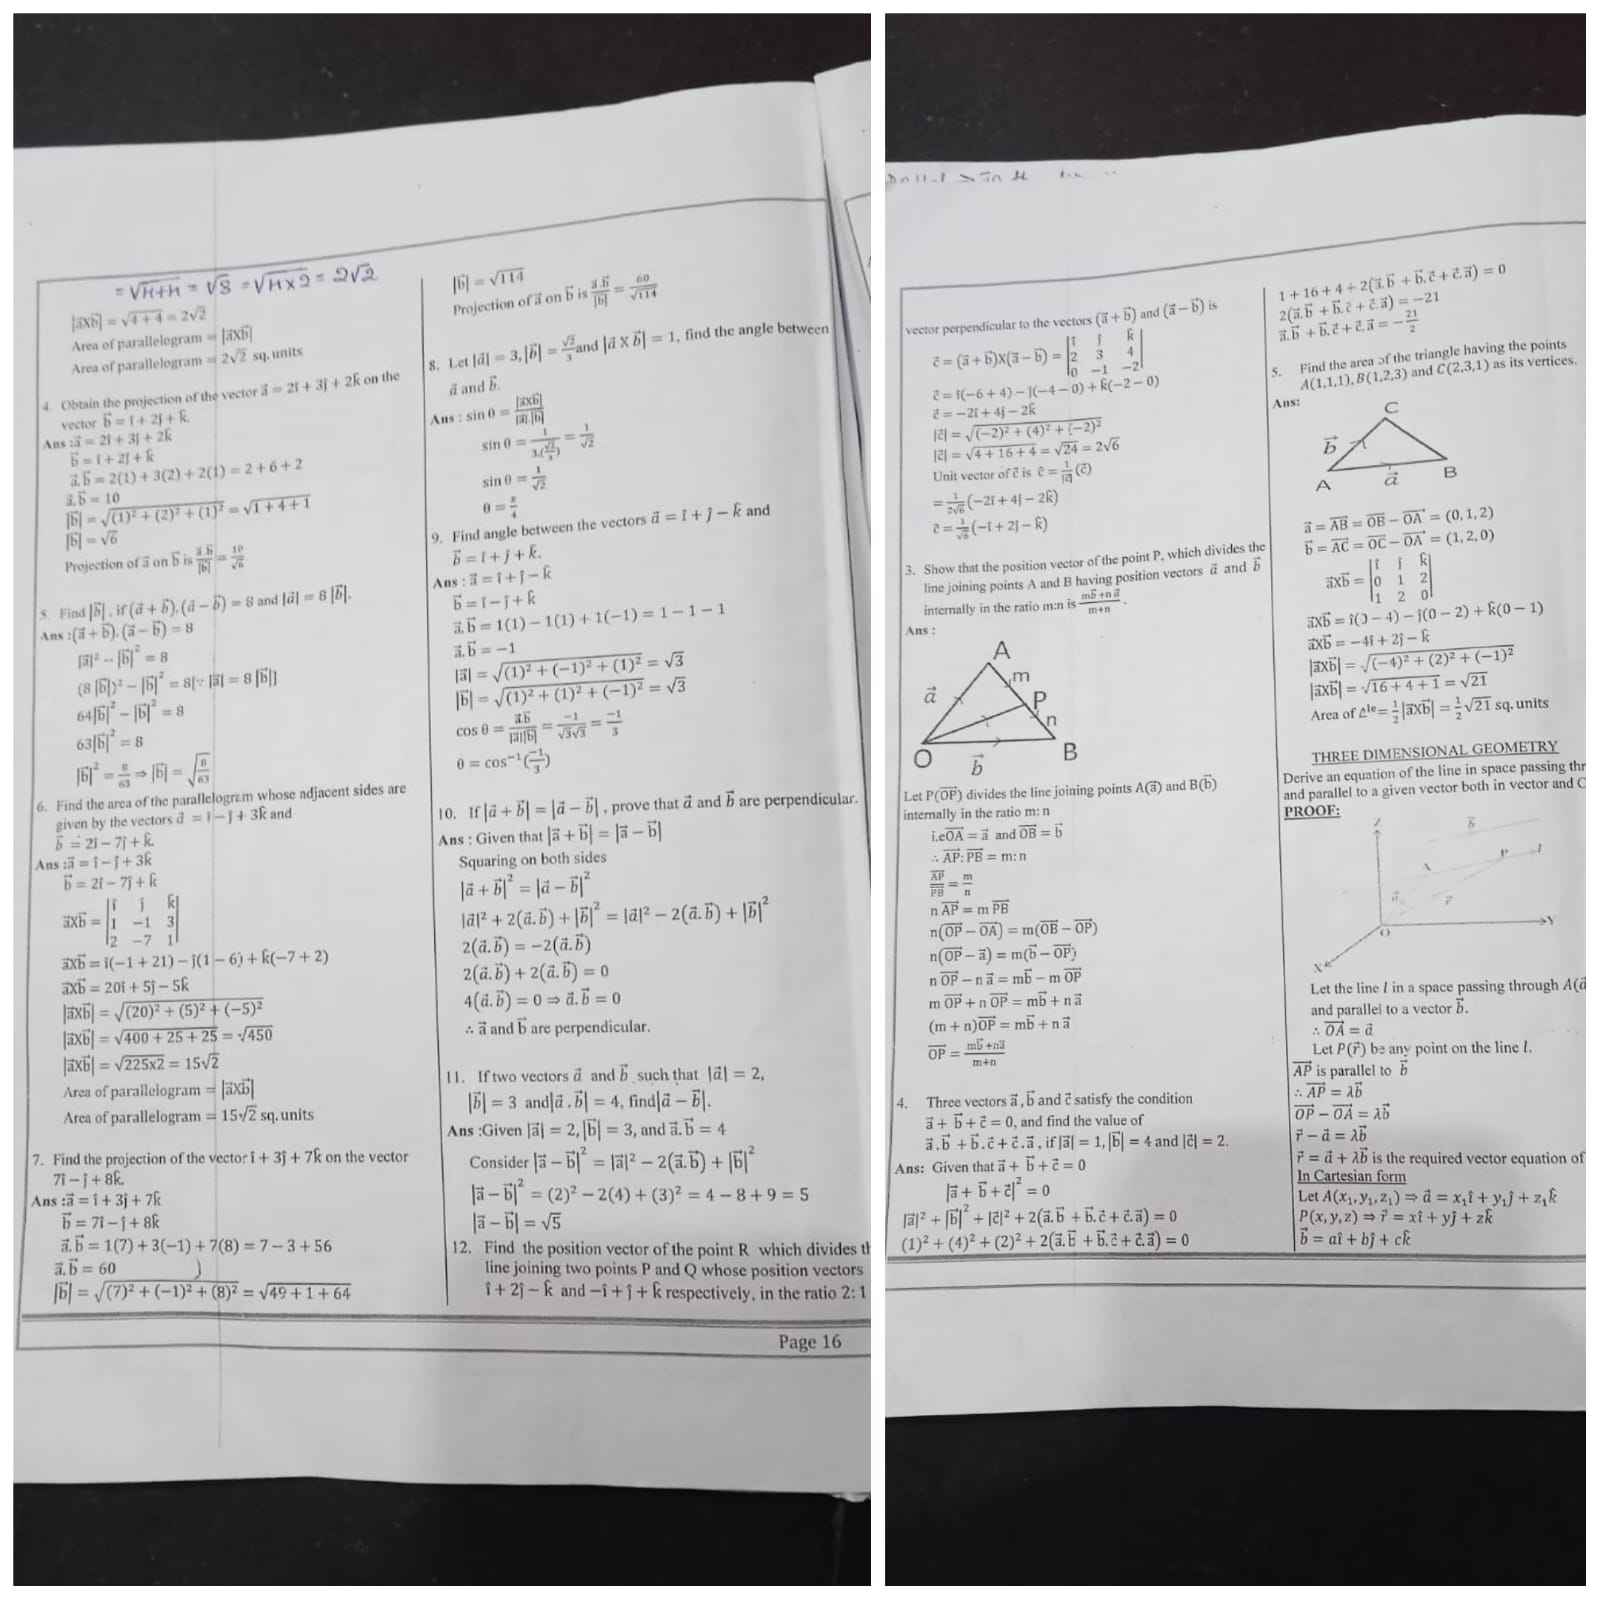 = √4+4 = √8 = √4×2 = 2√2
|a⃗Xb⃗| = √4 + 4 = 2√2
Area of parallelogram = |a⃗Xb⃗|
Area of parallelogram = 2√2 sq. units
4. Obtain the projection of the vector a⃗ = 2î + 3ĵ + 2k̂ on the
vector b⃗ = î + 2ĵ + k̂.
Ans :a⃗ = 2î + 3ĵ + 2k̂
b⃗ = î + 2ĵ + k̂
a⃗.b⃗ = 2(1) + 3(2) + 2(1) = 2 + 6 + 2
a⃗.b⃗ = 10
|b⃗| = √(1)² + (2)² + (1)² = √1 + 4 + 1
|b⃗| = √6
Projection of a⃗ on b⃗ is a⃗.b⃗/|b⃗| = 10/√6
5. Find |b⃗|, if (a⃗ + b⃗).(a⃗ − b⃗) = 8 and |a⃗| = 8 |b⃗|.
Ans :(a⃗ + b⃗).(a⃗ − b⃗) = 8
|a⃗|² − |b⃗|² = 8
(8 |b⃗|)² − |b⃗|² = 8[∵ |a⃗| = 8 |b⃗|]
64|b⃗|² − |b⃗|² = 8
63|b⃗|² = 8
|b⃗|² = 8/63 ⇒ |b⃗| = √8/63
6. Find the area of the parallelogram whose adjacent sides are
given by the vectors a⃗ = î − ĵ + 3k̂ and
b⃗ = 2î − 7ĵ + k̂.
Ans :a⃗ = î − ĵ + 3k̂
b⃗ = 2î − 7ĵ + k̂
a⃗Xb⃗ = |î ĵ k̂|
|1 −1 3|
|2 −7 1|
a⃗Xb⃗ = î(−1 + 21) − ĵ(1 − 6) + k̂(−7 + 2)
a⃗Xb⃗ = 20î + 5ĵ − 5k̂
|a⃗Xb⃗| = √(20)² + (5)² + (−5)²
|a⃗Xb⃗| = √400 + 25 + 25 = √450
|a⃗Xb⃗| = √225x2 = 15√2
Area of parallelogram = |a⃗Xb⃗|
Area of parallelogram = 15√2 sq. units
7. Find the projection of the vector î + 3ĵ + 7k̂ on the vector
7î − ĵ + 8k̂.
Ans :a⃗ = î + 3ĵ + 7k̂
b⃗ = 7î − ĵ + 8k̂
a⃗.b⃗ = 1(7) + 3(−1) + 7(8) = 7 − 3 + 56
a⃗.b⃗ = 60
|b⃗| = √(7)² + (−1)² + (8)² = √49 + 1 + 64
|b⃗| = √114
Projection of a⃗ on b⃗ is a⃗.b⃗/|b⃗| = 60/√114
8. Let |a⃗| = 3, |b⃗| = √2/3 and |a⃗ X b⃗| = 1, find the angle between
a⃗ and b⃗.
Ans : sin θ = |a⃗xb⃗|/|a⃗|.|b⃗|
sin θ = 1/3.(√2/3) = 1/√2
sin θ = 1/√2
θ = π/4
9. Find angle between the vectors a⃗ = î + ĵ − k̂ and
b⃗ = î + ĵ + k̂.
Ans : a⃗ = î + ĵ − k̂
b⃗ = î − ĵ + k̂
a⃗.b⃗ = 1(1) − 1(1) + 1(−1) = 1 − 1 − 1
a⃗.b⃗ = −1
|a⃗| = √(1)² + (−1)² + (1)² = √3
|b⃗| = √(1)² + (1)² + (−1)² = √3
cos θ = a⃗.b⃗/|a⃗||b⃗| = −1/√3√3 = −1/3
θ = cos⁻¹(−1/3)
10. If |a⃗ + b⃗| = |a⃗ − b⃗|, prove that a⃗ and b⃗ are perpendicular.
Ans : Given that |a⃗ + b⃗| = |a⃗ − b⃗|
Squaring on both sides
|a⃗ + b⃗|² = |a⃗ − b⃗|²
|a⃗|² + 2(a⃗.b⃗) + |b⃗|² = |a⃗|² − 2(a⃗.b⃗) + |b⃗|²
2(a⃗.b⃗) = −2(a⃗.b⃗)
2(a⃗.b⃗) + 2(a⃗.b⃗) = 0
4(a⃗.b⃗) = 0 ⇒ a⃗.b⃗ = 0
∴ a⃗ and b⃗ are perpendicular.
11. If two vectors a⃗ and b⃗ such that |a⃗| = 2,
|b⃗| = 3 and|a⃗.b⃗| = 4, find|a⃗ − b⃗|.
Ans :Given |a⃗| = 2, |b⃗| = 3, and a⃗.b⃗ = 4
Consider |a⃗ − b⃗|² = |a⃗|² − 2(a⃗.b⃗) + |b⃗|²
|a⃗ − b⃗|² = (2)² − 2(4) + (3)² = 4 − 8 + 9 = 5
|a⃗ − b⃗| = √5
12. Find the position vector of the point R which divides th
line joining two points P and Q whose position vectors
î + 2ĵ − k̂ and −î + ĵ + k̂ respectively, in the ratio 2: 1
Page 16
vector perpendicular to the vectors (a⃗ + b⃗) and (a⃗ − b⃗) is
c⃗ = (a⃗ + b⃗)X(a⃗ − b⃗) = |î ĵ k̂|
|2 3 4|
|0 −1 −2|
c⃗ = î(−6 + 4) − ĵ(−4 − 0) + k̂(−2 − 0)
c⃗ = −2î + 4ĵ − 2k̂
|c⃗| = √(−2)² + (4)² + (−2)²
|c⃗| = √4 + 16 + 4 = √24 = 2√6
Unit vector of c⃗ is ĉ = 1/|c⃗| (c⃗)
= 1/2√6 (−2î + 4ĵ − 2k̂)
ĉ = 1/√6 (−î + 2ĵ − k̂)
3. Show that the position vector of the point P, which divides the
line joining points A and B having position vectors a⃗ and b⃗
internally in the ratio m:n is mb⃗+na⃗/m+n.
Ans :
A
m
a⃗
P
n
O
b⃗
B
Let P(OP⃗) divides the line joining points A(a⃗) and B(b⃗)
internally in the ratio m: n
i.e OA⃗ = a⃗ and OB⃗ = b⃗
∴ AP⃗: PB⃗ = m: n
AP⃗/PB⃗ = m/n
n AP⃗ = m PB⃗
n(OP⃗ − OA⃗) = m(OB⃗ − OP⃗)
n(OP⃗ − a⃗) = m(b⃗ − OP⃗)
n OP⃗ − n a⃗ = mb⃗ − m OP⃗
m OP⃗ + n OP⃗ = mb⃗ + n a⃗
(m + n)OP⃗ = mb⃗ + n a⃗
OP⃗ = mb⃗+na⃗/m+n
4. Three vectors a⃗, b⃗ and c⃗ satisfy the condition
a⃗ + b⃗ + c⃗ = 0, and find the value of
a⃗.b⃗ + b⃗.c⃗ + c⃗.a⃗, if |a⃗| = 1, |b⃗| = 4 and |c⃗| = 2.
Ans: Given that a⃗ + b⃗ + c⃗ = 0
|a⃗ + b⃗ + c⃗|² = 0
|a⃗|² + |b⃗|² + |c⃗|² + 2(a⃗.b⃗ + b⃗.c⃗ + c⃗.a⃗) = 0
(1)² + (4)² + (2)² + 2(a⃗.b⃗ + b⃗.c⃗ + c⃗.a⃗) = 0
1 + 16 + 4 + 2(a⃗.b⃗ + b⃗.c⃗ + c⃗.a⃗) = 0
2(a⃗.b⃗ + b⃗.c⃗ + c⃗.a⃗) = −21
a⃗.b⃗ + b⃗.c⃗ + c⃗.a⃗ = −21/2
5. Find the area of the triangle having the points
A(1,1,1), B(1,2,3) and C(2,3,1) as its vertices.
Ans:
C
b⃗
A
a⃗
B
a⃗ = AB⃗ = OB⃗ − OA⃗ = (0, 1, 2)
b⃗ = AC⃗ = OC⃗ − OA⃗ = (1, 2, 0)
a⃗xb⃗ = |î ĵ k̂|
|0 1 2|
|1 2 0|
a⃗xb⃗ = î(0 − 4) − ĵ(0 − 2) + k̂(0 − 1)
a⃗xb⃗ = −4î + 2ĵ − k̂
|a⃗xb⃗| = √(−4)² + (2)² + (−1)²
|a⃗xb⃗| = √16 + 4 + 1 = √21
Area of Δˡᵉ = 1/2 |a⃗xb⃗| = 1/2 √21 sq. units
THREE DIMENSIONAL GEOMETRY
Derive an equation of the line in space passing thr
and parallel to a given vector both in vector and C
PROOF:
Z
b⃗
P
l
A
a⃗
r⃗
O
Y
X
Let the line l in a space passing through A(a⃗
and parallel to a vector b⃗.
∴ OA⃗ = a⃗
Let P(r⃗) be any point on the line l.
AP⃗ is parallel to b⃗
∴ AP⃗ = λb⃗
OP⃗ − OA⃗ = λb⃗
r⃗ − a⃗ = λb⃗
r⃗ = a⃗ + λb⃗ is the required vector equation of
In Cartesian form
Let A(x₁, y₁, z₁) ⇒ a⃗ = x₁î + y₁ĵ + z₁k̂
P(x, y, z) ⇒ r⃗ = xî + yĵ + zk̂
b⃗ = aî + bĵ + ck̂